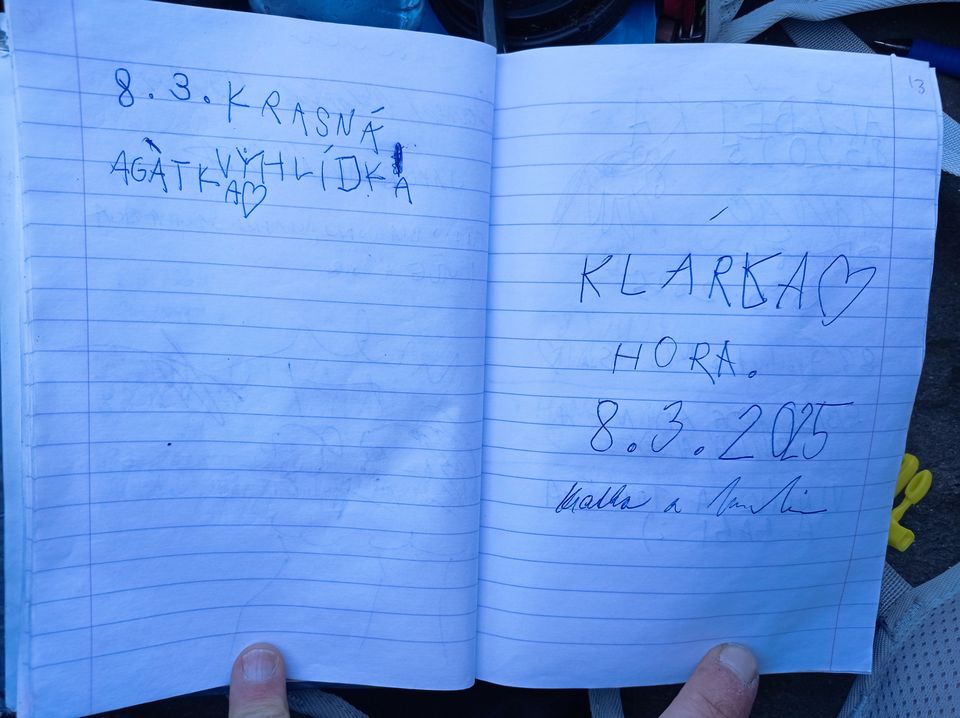 8.3. KRASNÁ
VÝHLÍDKA
AGÁTKA
13
KLÁRKA
HORA.
8.3.2025
a